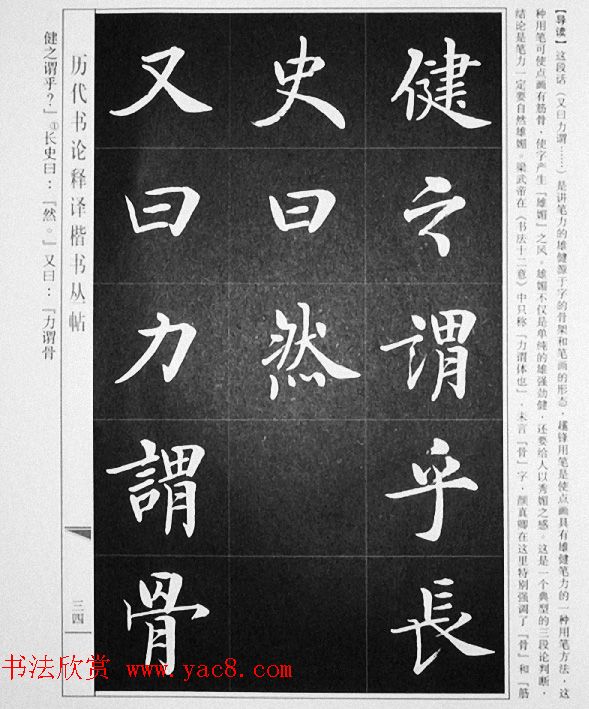 【导读】这段话（又曰力谓……）是讲笔力的雄健源于字的骨架和笔画的形态，趯锋用笔是使点画具有雄健笔力的一种用笔方法，这
种用笔可使点画有筋骨，使字产生「雄媚」之风。雄媚不仅是单纯的雄强劲健，还要给人以秀媚之感。这是一个典型的三段论判断，
结论是笔力一定要自然雄媚。梁武帝在《书法十二意》中只称「力谓体也」，未言「骨」字，颜真卿在这里特别强调了「骨」和「筋
健之謂乎長
史曰然
又曰力謂骨
历代书论释译楷书丛帖
三四
健之谓乎？」①长史曰：「然。」又曰：「力谓骨
书法欣赏 www.yac8.com